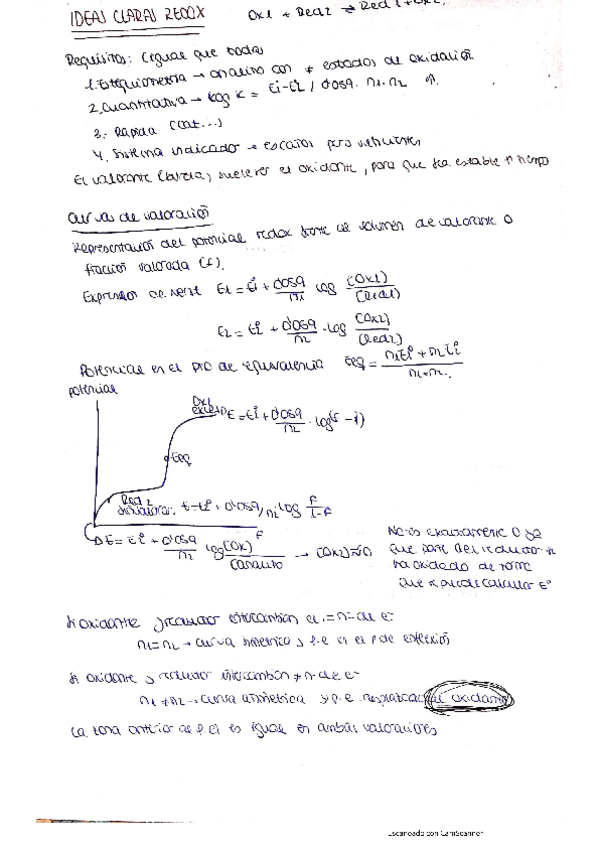 IDEAS CLARAS REDOX
Ox1 + Red2 ⇌ Red1 + Ox2.
Requisitos: (igual que todas
1. Estequiometria → analito con ≠ estados de oxidación
2. Cuantitativa → log K = E1-E2 / 0'059 · n1·n2 ↑.
3. Rápida (cat...)
4. Sistema indicador → escasos pero suficientes
El valorante suele ser el oxidante, para que sea estable + tiempo
Curvas de valoración
Representación del potencial redox frente al volumen de valorante o
fracción valorada (F).
Expresión de Nernst E1 = E1º + 0'059/n1 log (Ox1)/(Red1)
E2 = E2º + 0'059/n2 · log (Ox2)/(Red2)
Potencial en el pto de equivalencia Eeq = n1E1º + n2E2º / n1+n2
potencial
Ox1
exceso E = E1º + 0'059/n1 · log (F - 1)
Eeq
Red 2
E = E2º + 0'059/n2 log F/1-F
F
E = E2º + 0'059/n2 log (Ox)/analito → (Ox2) ≈ 0
No es exactamente 0 ya
que parte del reductor se
ha oxidado de forma
que se puede calcular Eº
Si oxidante y reductor intercambian el = nº de e-
n1 = n2 → curva simétrica y p.e es el p de inflexión
Si oxidante y reductor intercambian ≠ nº de e-
n1 ≠ n2 → curva asimétrica y p.e desplazado al oxidante
La zona anterior al p.e es igual en ambas valoraciones
Escaneado con CamScanner